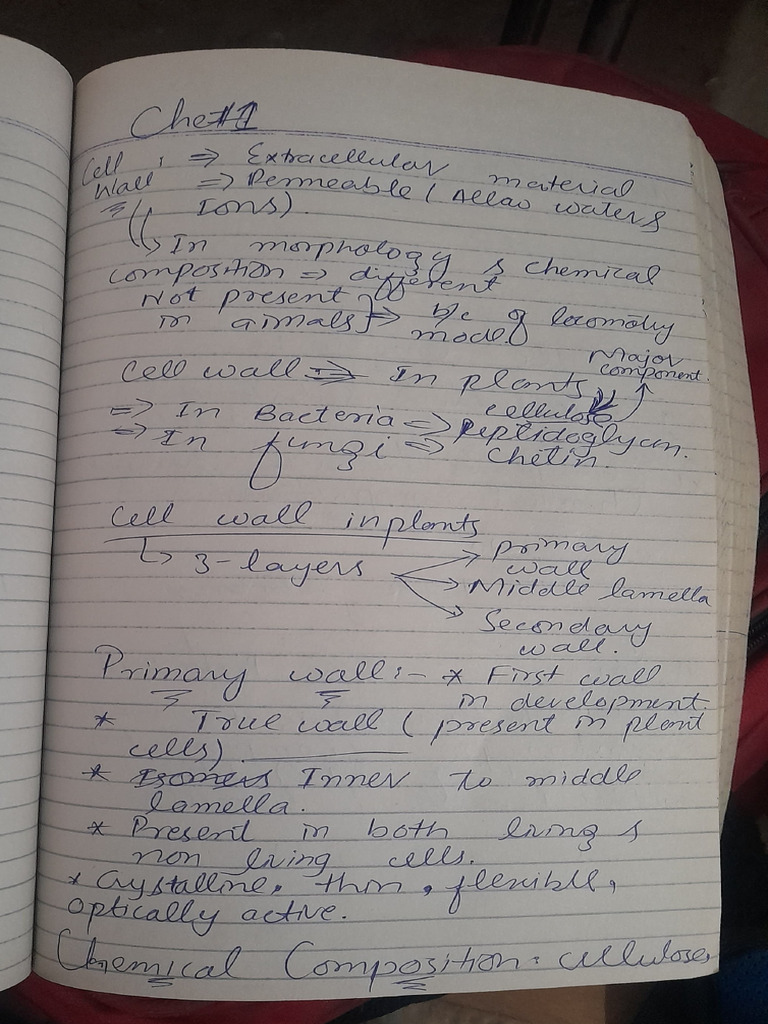 Che#1
Cell : => Extracellular material
Wall => Permeable (Allao waters
Ions).
In morphology & chemical
composition => different
Not present } => b/c of locomotry
in aimals } mode.
Major
component.
Cell wall => In plants
cellulose
=> In Bacteria => peptidoglycan.
=> In fungi => chetin.
Cell wall in plants
3-layers
primary
wall
Middle lamella
Secondary
wall.
Primary wall:- * First wall
in development.
* True wall ( present in plant
cells)
* Isomers Inner to middle
lamella.
* Present in both living &
non living cells.
* Crystalline, thin, flexible,
optically active.
Chemical Composition: cellulose,